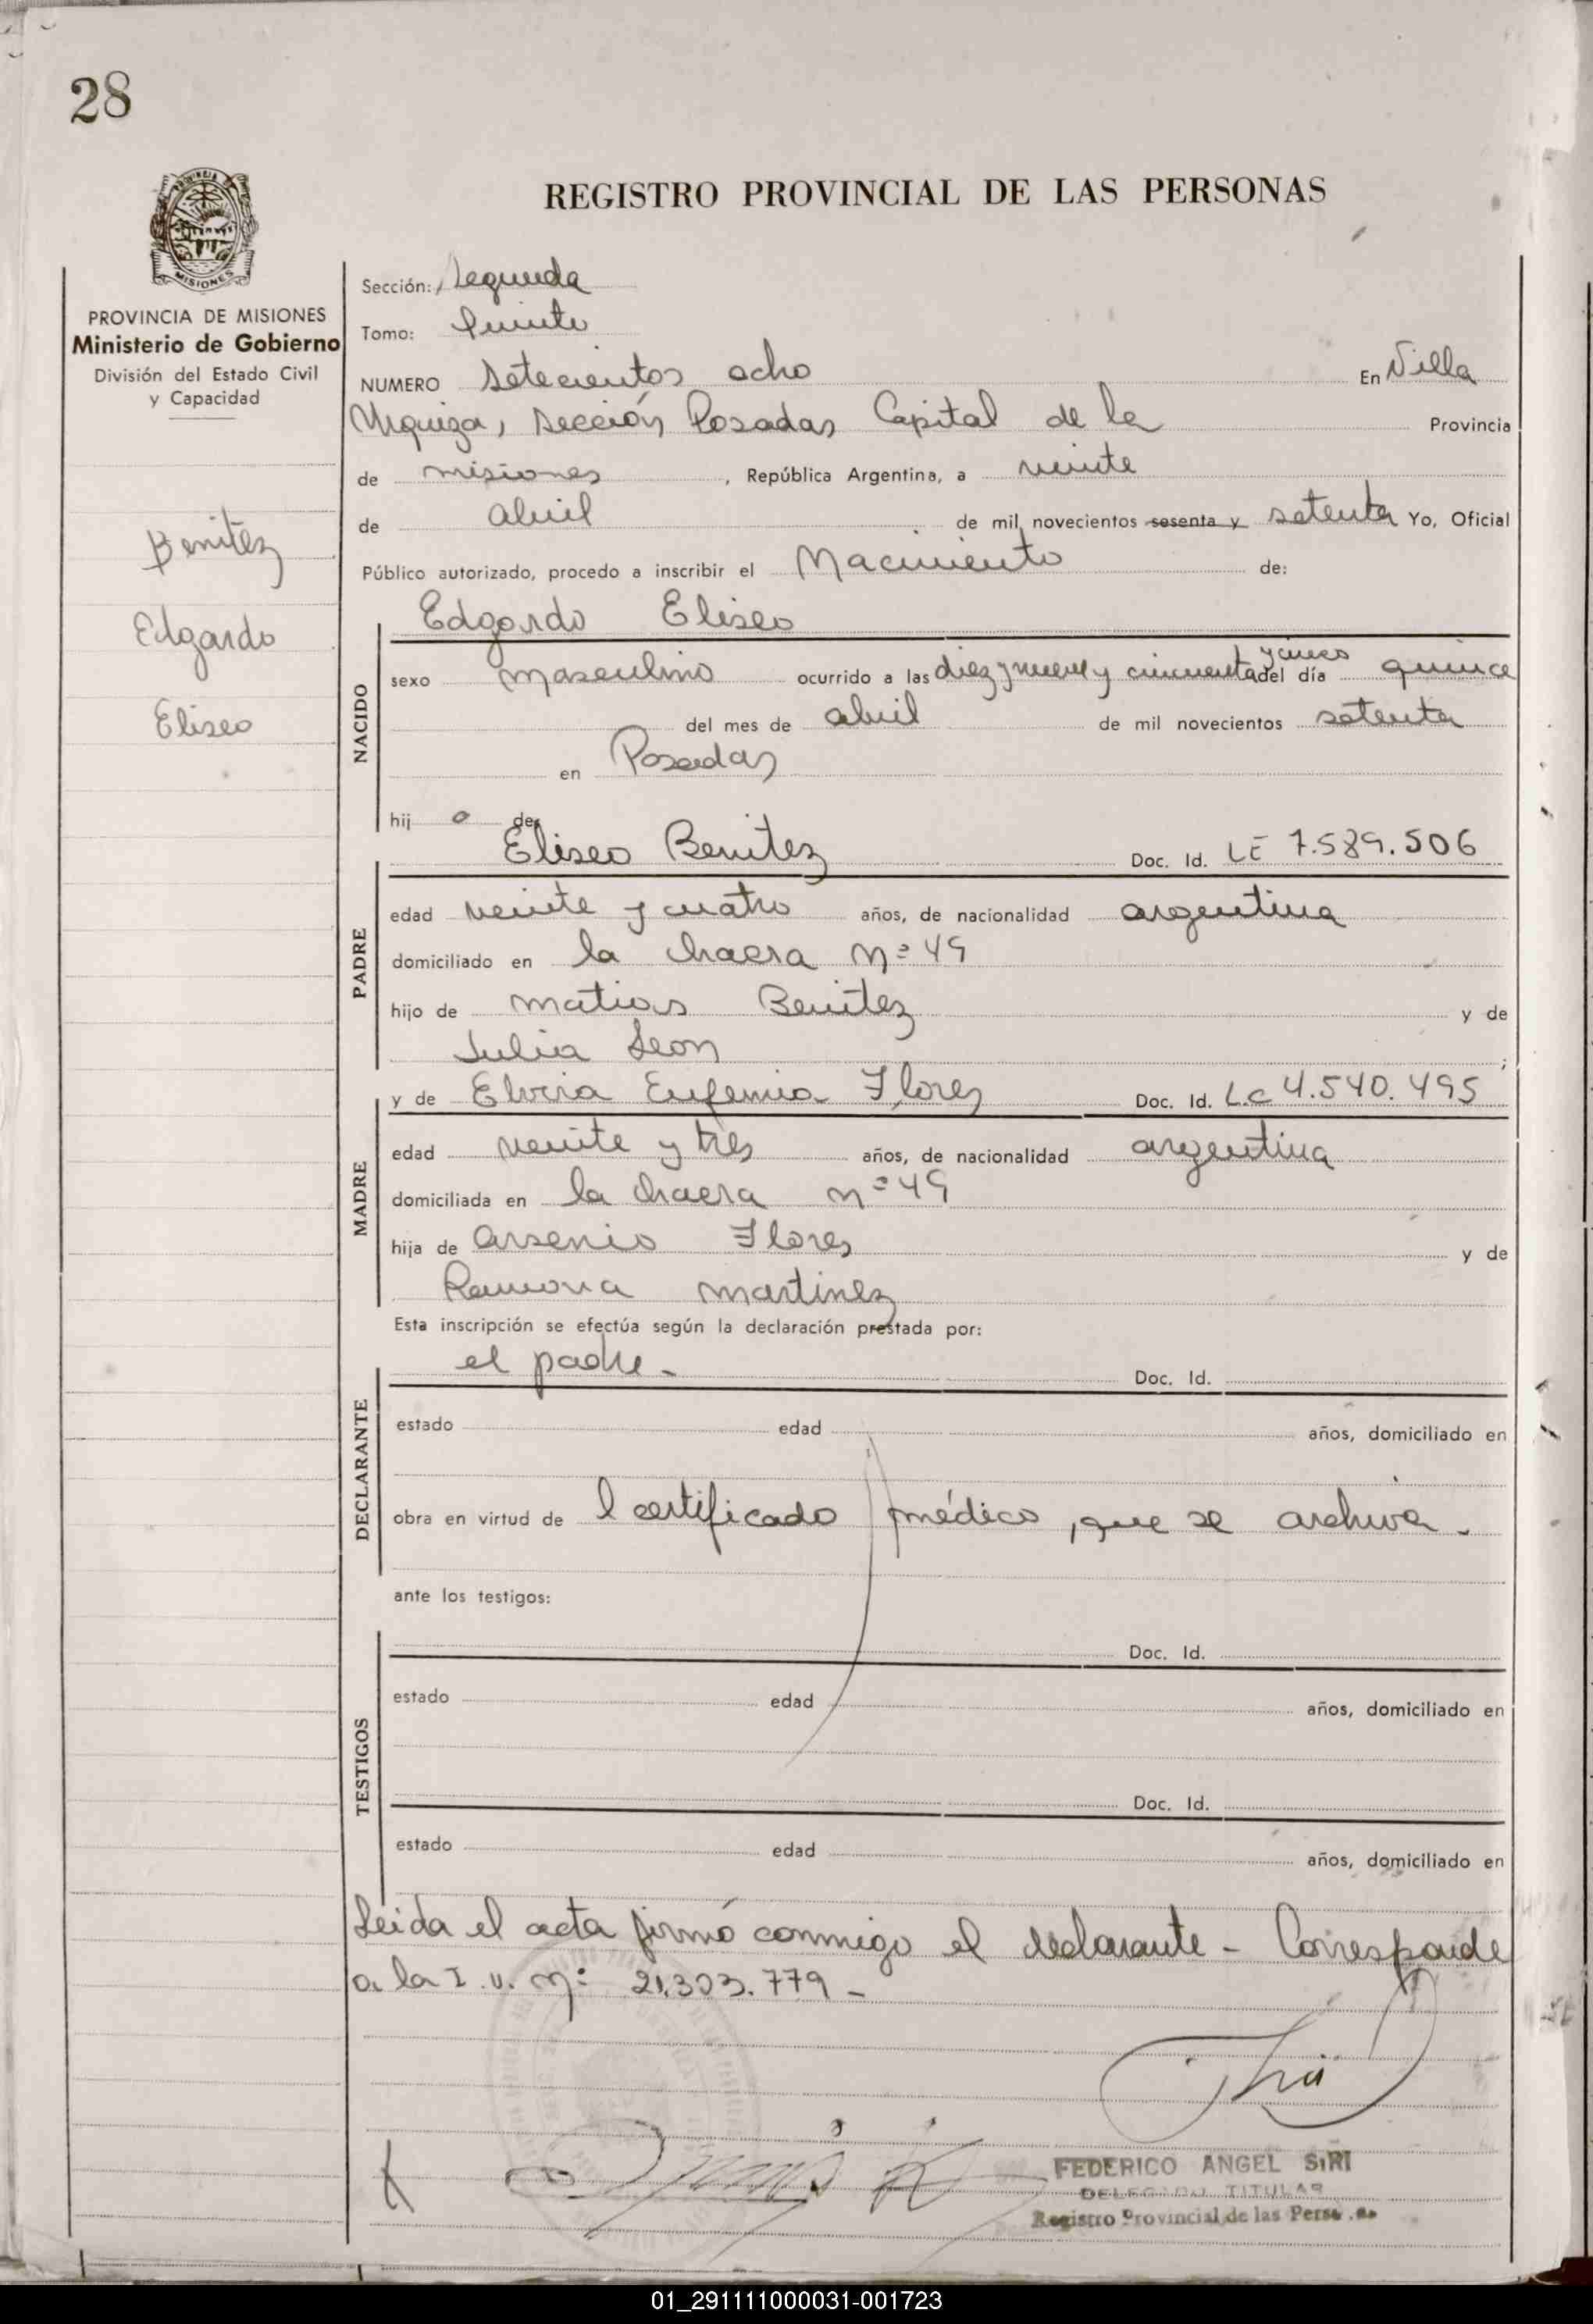 28
PROVINCIA DE
MISIONES
REGISTRO PROVINCIAL DE LAS PERSONAS
PROVINCIA DE MISIONES
Ministerio de Gobierno
División del Estado Civil
y Capacidad
Benitez
Edgardo
Eliseo
Sección: Segunda
Tomo: Quinto
NUMERO Setecientos ocho En Villa
Urquiza, Sección Posadas Capital de la Provincia
de misiones, República Argentina, a veinte
de abril de mil novecientos sesenta y setenta Yo, Oficial
Público autorizado, procedo a inscribir el Nacimiento de:
NACIDO
Edgardo Eliseo
sexo masculino ocurrido a las diez y nueve y cincuenta y cinco del día quince
del mes de abril de mil novecientos setenta
en Posadas
hij o de
PADRE
Eliseo Benitez Doc. Id. LE 7.589.506
edad veinte y cuatro años, de nacionalidad argentina
domiciliado en la chacra Nº 49
hijo de matias Benitez y de
Julia Leon;
MADRE
y de Elvira Eufemia Flores Doc. Id. L.C 4.540.495
edad veinte y tres años, de nacionalidad argentina
domiciliada en la chacra nº 49
hija de Arsenio Flores y de
Ramona martinez
Esta inscripción se efectúa según la declaración prestada por:
DECLARANTE
el padre - Doc. Id.
estado edad años, domiciliado en
obra en virtud de l certificado médico, que se archiva -
ante los testigos:
TESTIGOS
Doc. Id.
estado edad años, domiciliado en
Doc. Id.
estado edad años, domiciliado en
Leida el acta firmó conmigo el declarante - Corresponde
a la I. u. Nº: 21.303.779 -
FEDERICO ANGEL SIRI
DELEGADO TITULAR
Registro Provincial de las Personas
01_291111000031-001723